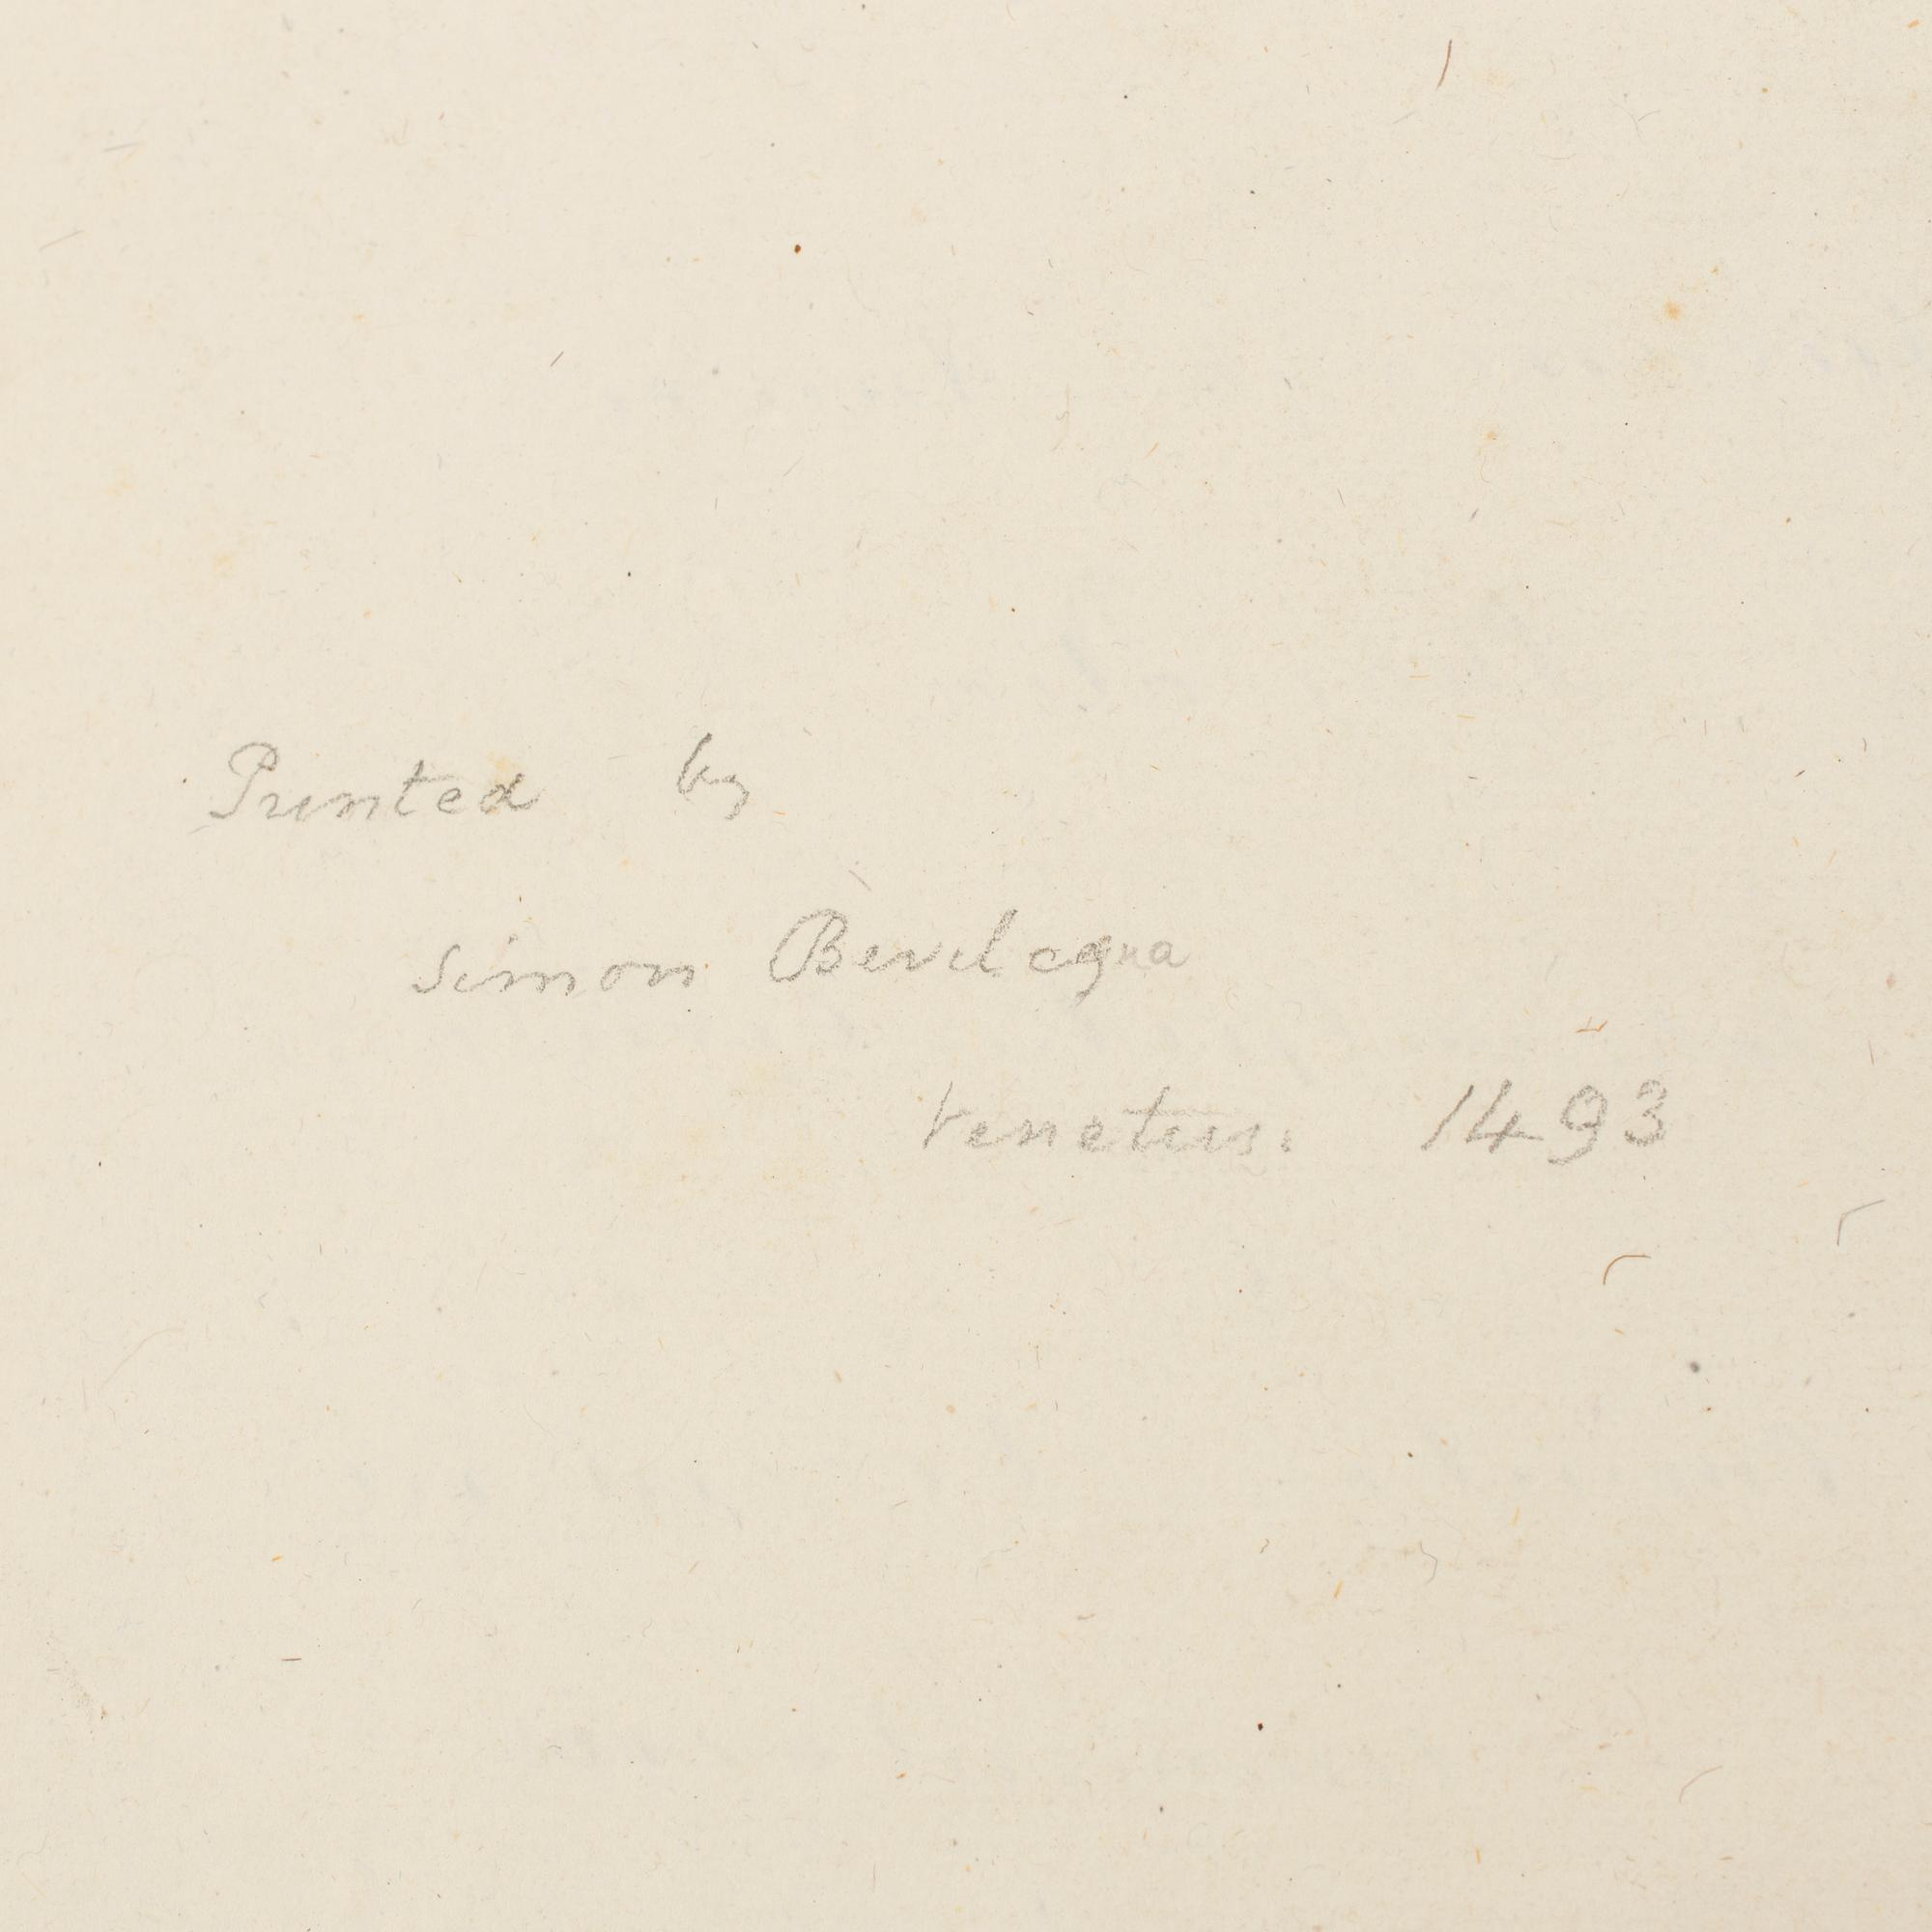 Printed by
Simon Bevilagna
Venetiis. 1493